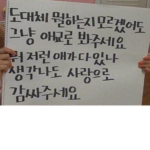 도대체 뭘하는지 모르겠어도
그냥 애교로 봐주세요
뭐 저런 애가 다 있나
생각나도 사랑으로
감싸주세요